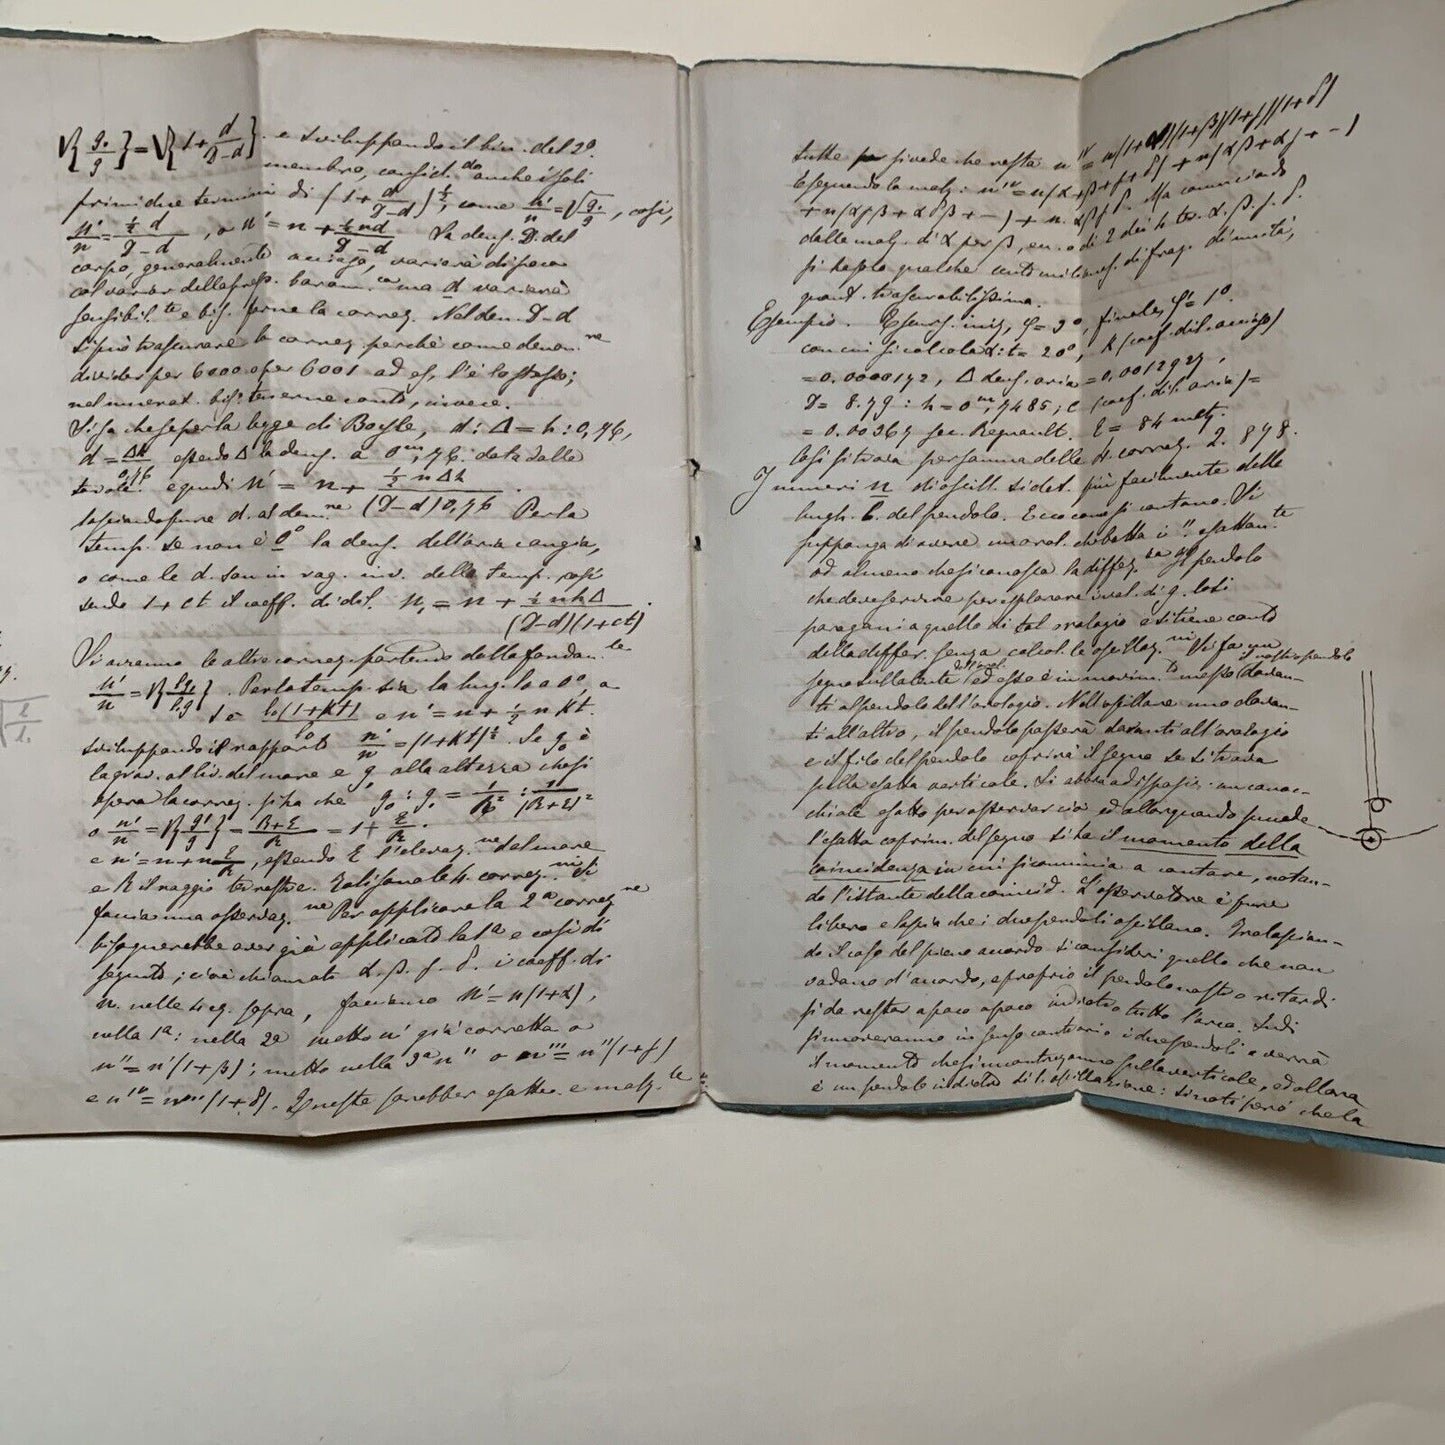 √{g₀/g} = √{1 + d/(D-d)} . e sviluppando il bin. del 2º
membro, consid.do anche i soli
primi due termini di (1 + d/(D-d))^½, come n'/n = √g₀/g, così,
n'/n = ½ d/(D-d), o n' = n + ½ nd/(D-d) La dens. D del
corpo, generalmente acciajo, varierà di poco
col variar della press. barom.ca ma d varierà
sensibil.te e bis. farne la correz. Nel den. D-d
si può trascurare la correz. perchè come denom.re
divider per 6000 o per 6001 ad es. l'è lo stesso;
nel numerat. bis. tenerne conto, invece.
Si sa che per la legge di Boyle, d : Δ = h : 0,76,
d = Δh/0,76 essendo Δ la dens. a 0m,76. data dalle
tavole. e quindi n' = n + ½ n Δh/(D-d)0,76 .
lasciando pure d. al den.re Per la
temp. se non è 0º la dens. dell'aria cangia,
o come le d. son in rag. inv. della temp. così
sendo 1 + ct il coeff. di dil. n₁ = n + ½ nhΔ/(D-d)(1+ct) .
Si avranno le altre correz. partendo dalla fondam.le
n'/n = √{lg₁/l₁g} . Per la temp. sia la lung. l₀ a 0º, a
t è l₀(1+Kt) e n' = n + ½ n Kt.
sviluppando il rapporto n'/n = (1+Kt)^½ . Se g₀ è
la grav. al liv. del mare e g' alla altezza che si
opera la correz. si ha che g₀ : g₁ = 1/R² : 1/(R+E)²
o n'/n = √{g'/g} = R+E/R = 1 + E/R .
e n' = n + n E/R, essendo E l'elevaz.ne dal mare
e R il raggio terrestre. Tali sono le 4 correz.ni Si
faccia una osservaz.ne Per applicare la 2ª correz.ne
bisognerebbe aver già applicato la 1ª e così di
seguito; cioè chiamati α. β. γ. δ. i coeff. di
n. nelle 4 eq. sopra, facciamo n' = n(1+α),
nella 1ª : nella 2ª metto n' già corretta o
n'' = n'(1+β); metto nella 3ª n'' o n''' = n''(1+γ)
e n'ᵛ = n'''(1+δ). Queste sarebber esatte. e
tutte si vede che resta n'ᵛ = n(1+α)(1+β)(1+γ)(1+δ)
Eseguendo la molt. : n'ᵛ = n(α+β+γ+δ) + n(αβ+αγ+–)
+ n(αγβ+αδβ+–) + n. αβγδ. Ma cominciando
dalle molt. di α per β, di 2 dei 4 ter. α. β. γ. δ.
si ha solo qualche centomilionesi. di fraz. di unità,
quant. trascurabilissima.
Esempio. Escurs. iniz, φ = 3º, finale, φ' = 1º.
con cui si calcola α : t = 20º, K (coef. dil. acciajo)
= 0.0000142, Δ dens. aria = 0,0012927,
D = 8.79 : h = 0m,7485; c (coef. dil. aria) =
= 0.00367 sec. Regnault. E = 84 met.
Così si trova per somma delle 4 correz. 2. 878.
I numeri n di oscill. si det. più facilmente delle
lungh. l. del pendolo. Ecco come si contano. Si
supponga di avere un orol. che batta i 1'' esattam.te
od almeno che si conosca la differ.za col pendolo
che deve servire per esplorare i val. di g. Così
paragoni a quello di tal orologio e si tiene conto
della differ. senza calcol. le oscillaz.ni Si fa un
segno sulla lente dell'orol. ed esso è in movim.to messo il nostro pendolo davan-
ti al pendolo dell'orologio. Nell'oscillare uno davan-
ti all'altro, il pendolo passerà davanti all'orologio
e il filo del pendolo coprirà il segno se si trova
sulla esatta verticale. Si abbia a disposiz. un canoc-
chiale esatto per osservar ciò ed allorquando succede
l'esatta coprim. del segno si ha il momento della
coincidenza in cui si comincia a contare, notan-
do l'istante della coincid. L'osservatore è pure
libero e lascia che i due pendoli oscillano. Tralascian-
do il caso del pieno accordo si consideri quello che non
vadano d'accordo, e proprio il pendolo nostro ritardi
sì da restar a poco a poco indietro tutto l'arco. Indi
si moveranno in senso contrario i due pendoli e verrà
il momento che s'incontreranno sulla verticale, ed allora
è un pendolo indietro di 1. oscillazione : si noti però che la